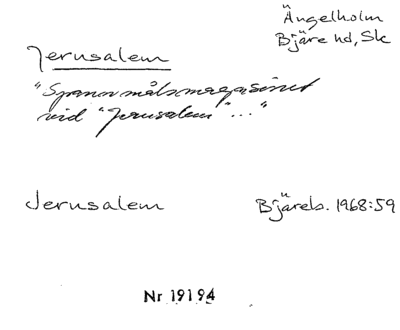 Ängelholm
Bjäre hd, Sk
Jerusalem
"Spannmålsmagasinet
vid "Jerusalem"..."
Jerusalem
Bjäreb. 1968:59
Nr 19194